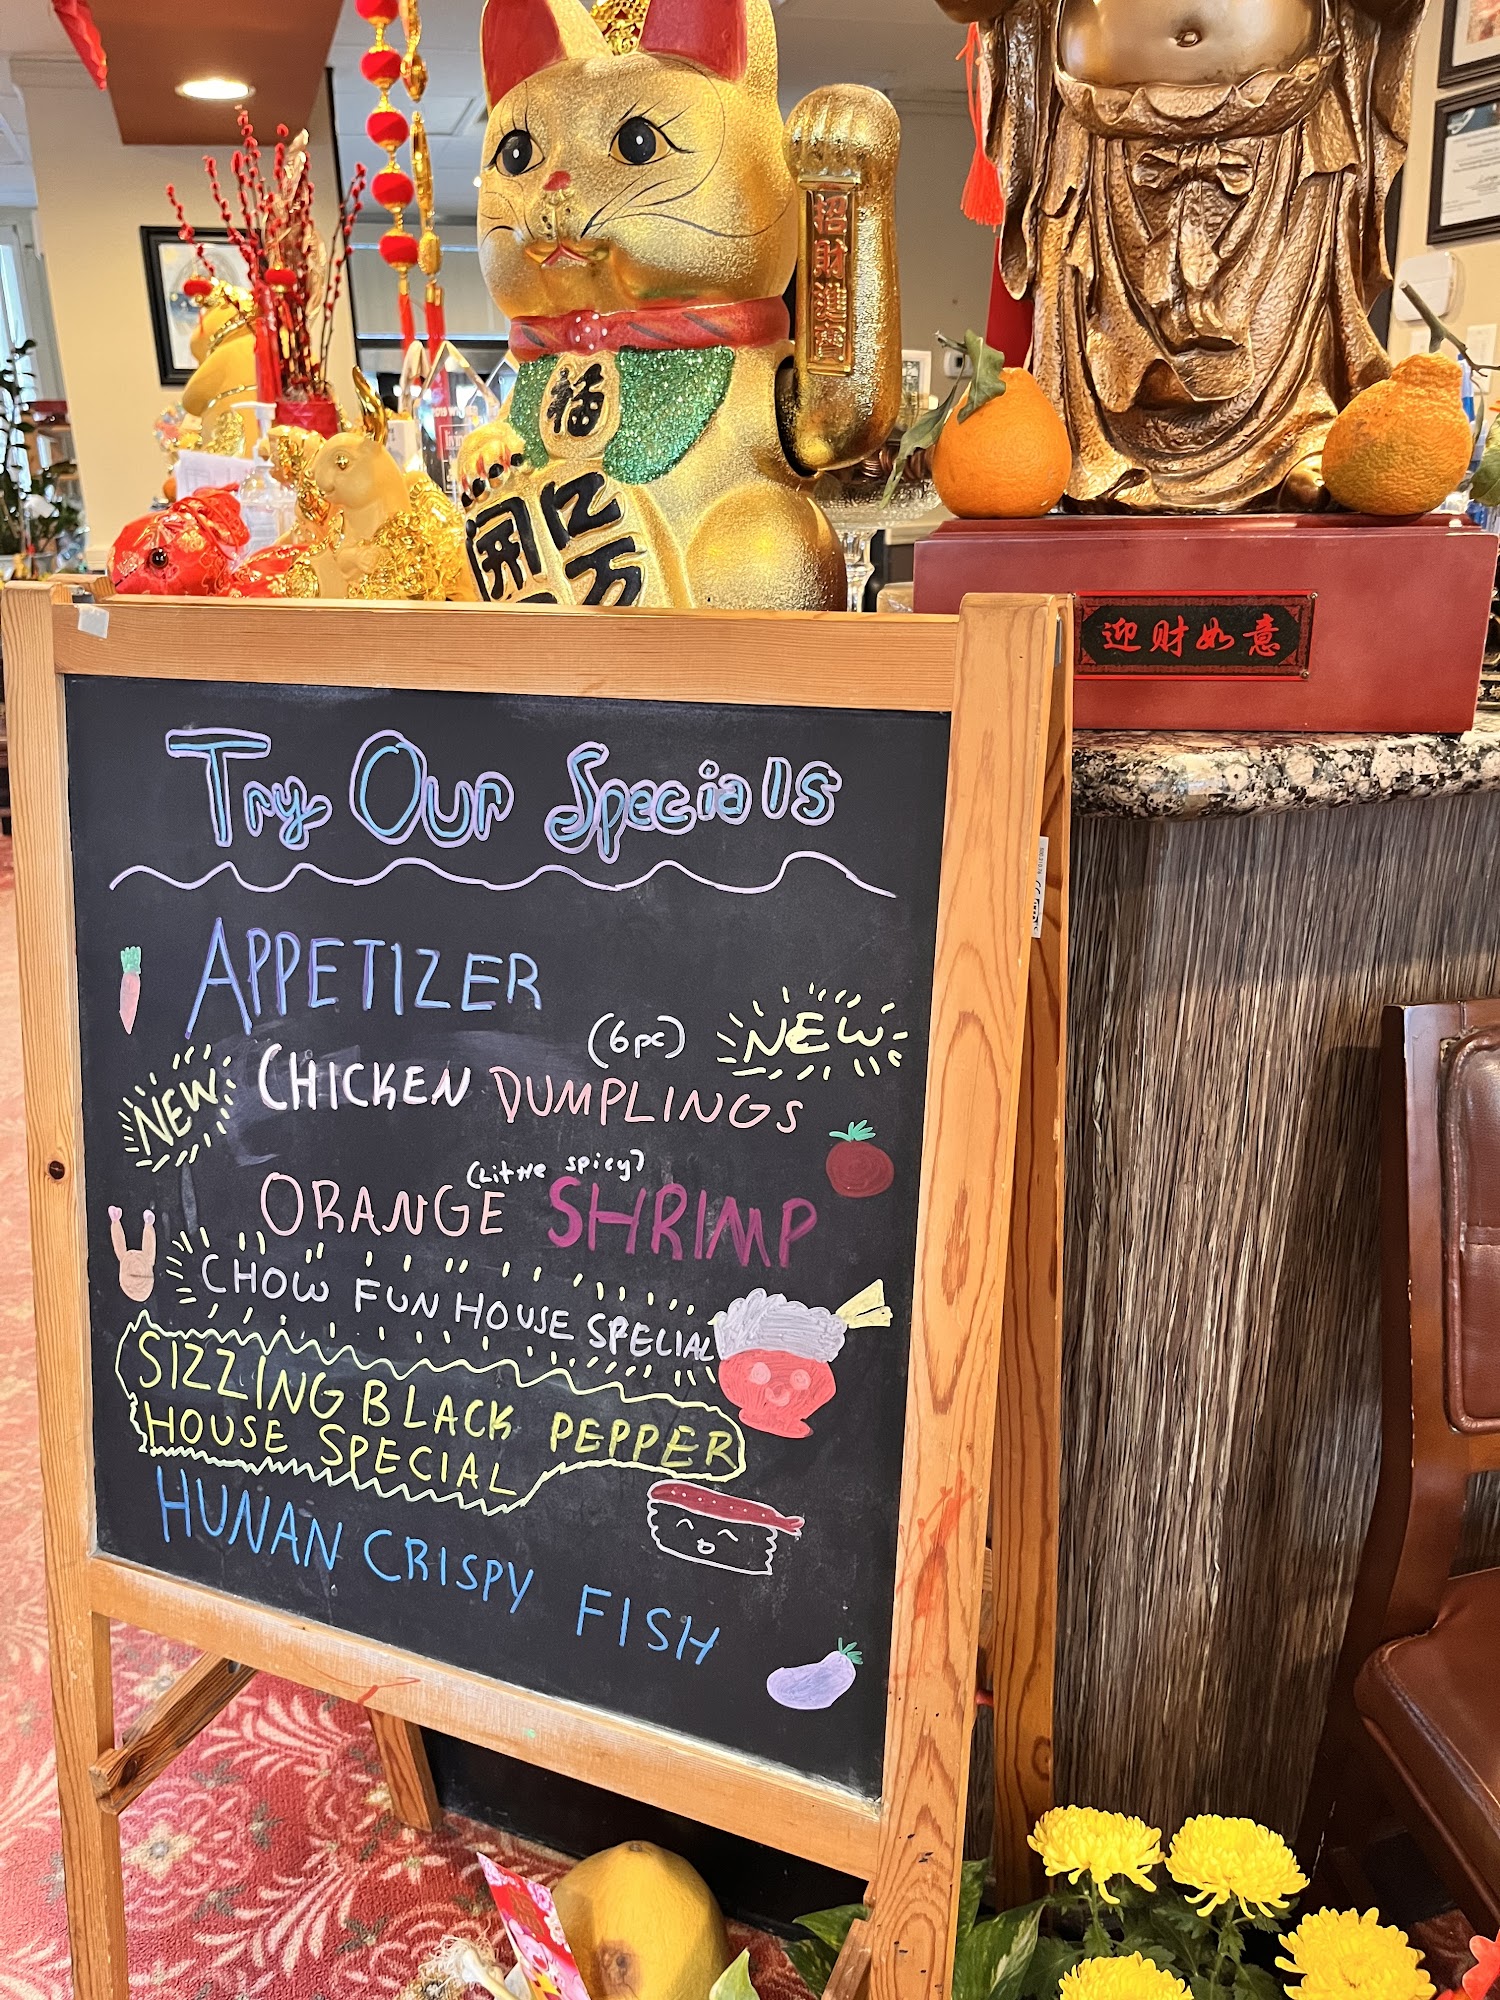 招財進寶
福
開
万
迎财如意
Try Our Specials
APPETIZER
(6pc)
NEW
NEW
CHICKEN DUMPLINGS
(Little spicy)
ORANGE SHRIMP
CHOW FUN HOUSE SPECIAL
SIZZING BLACK PEPPER
HOUSE SPECIAL
HUNAN CRISPY FISH